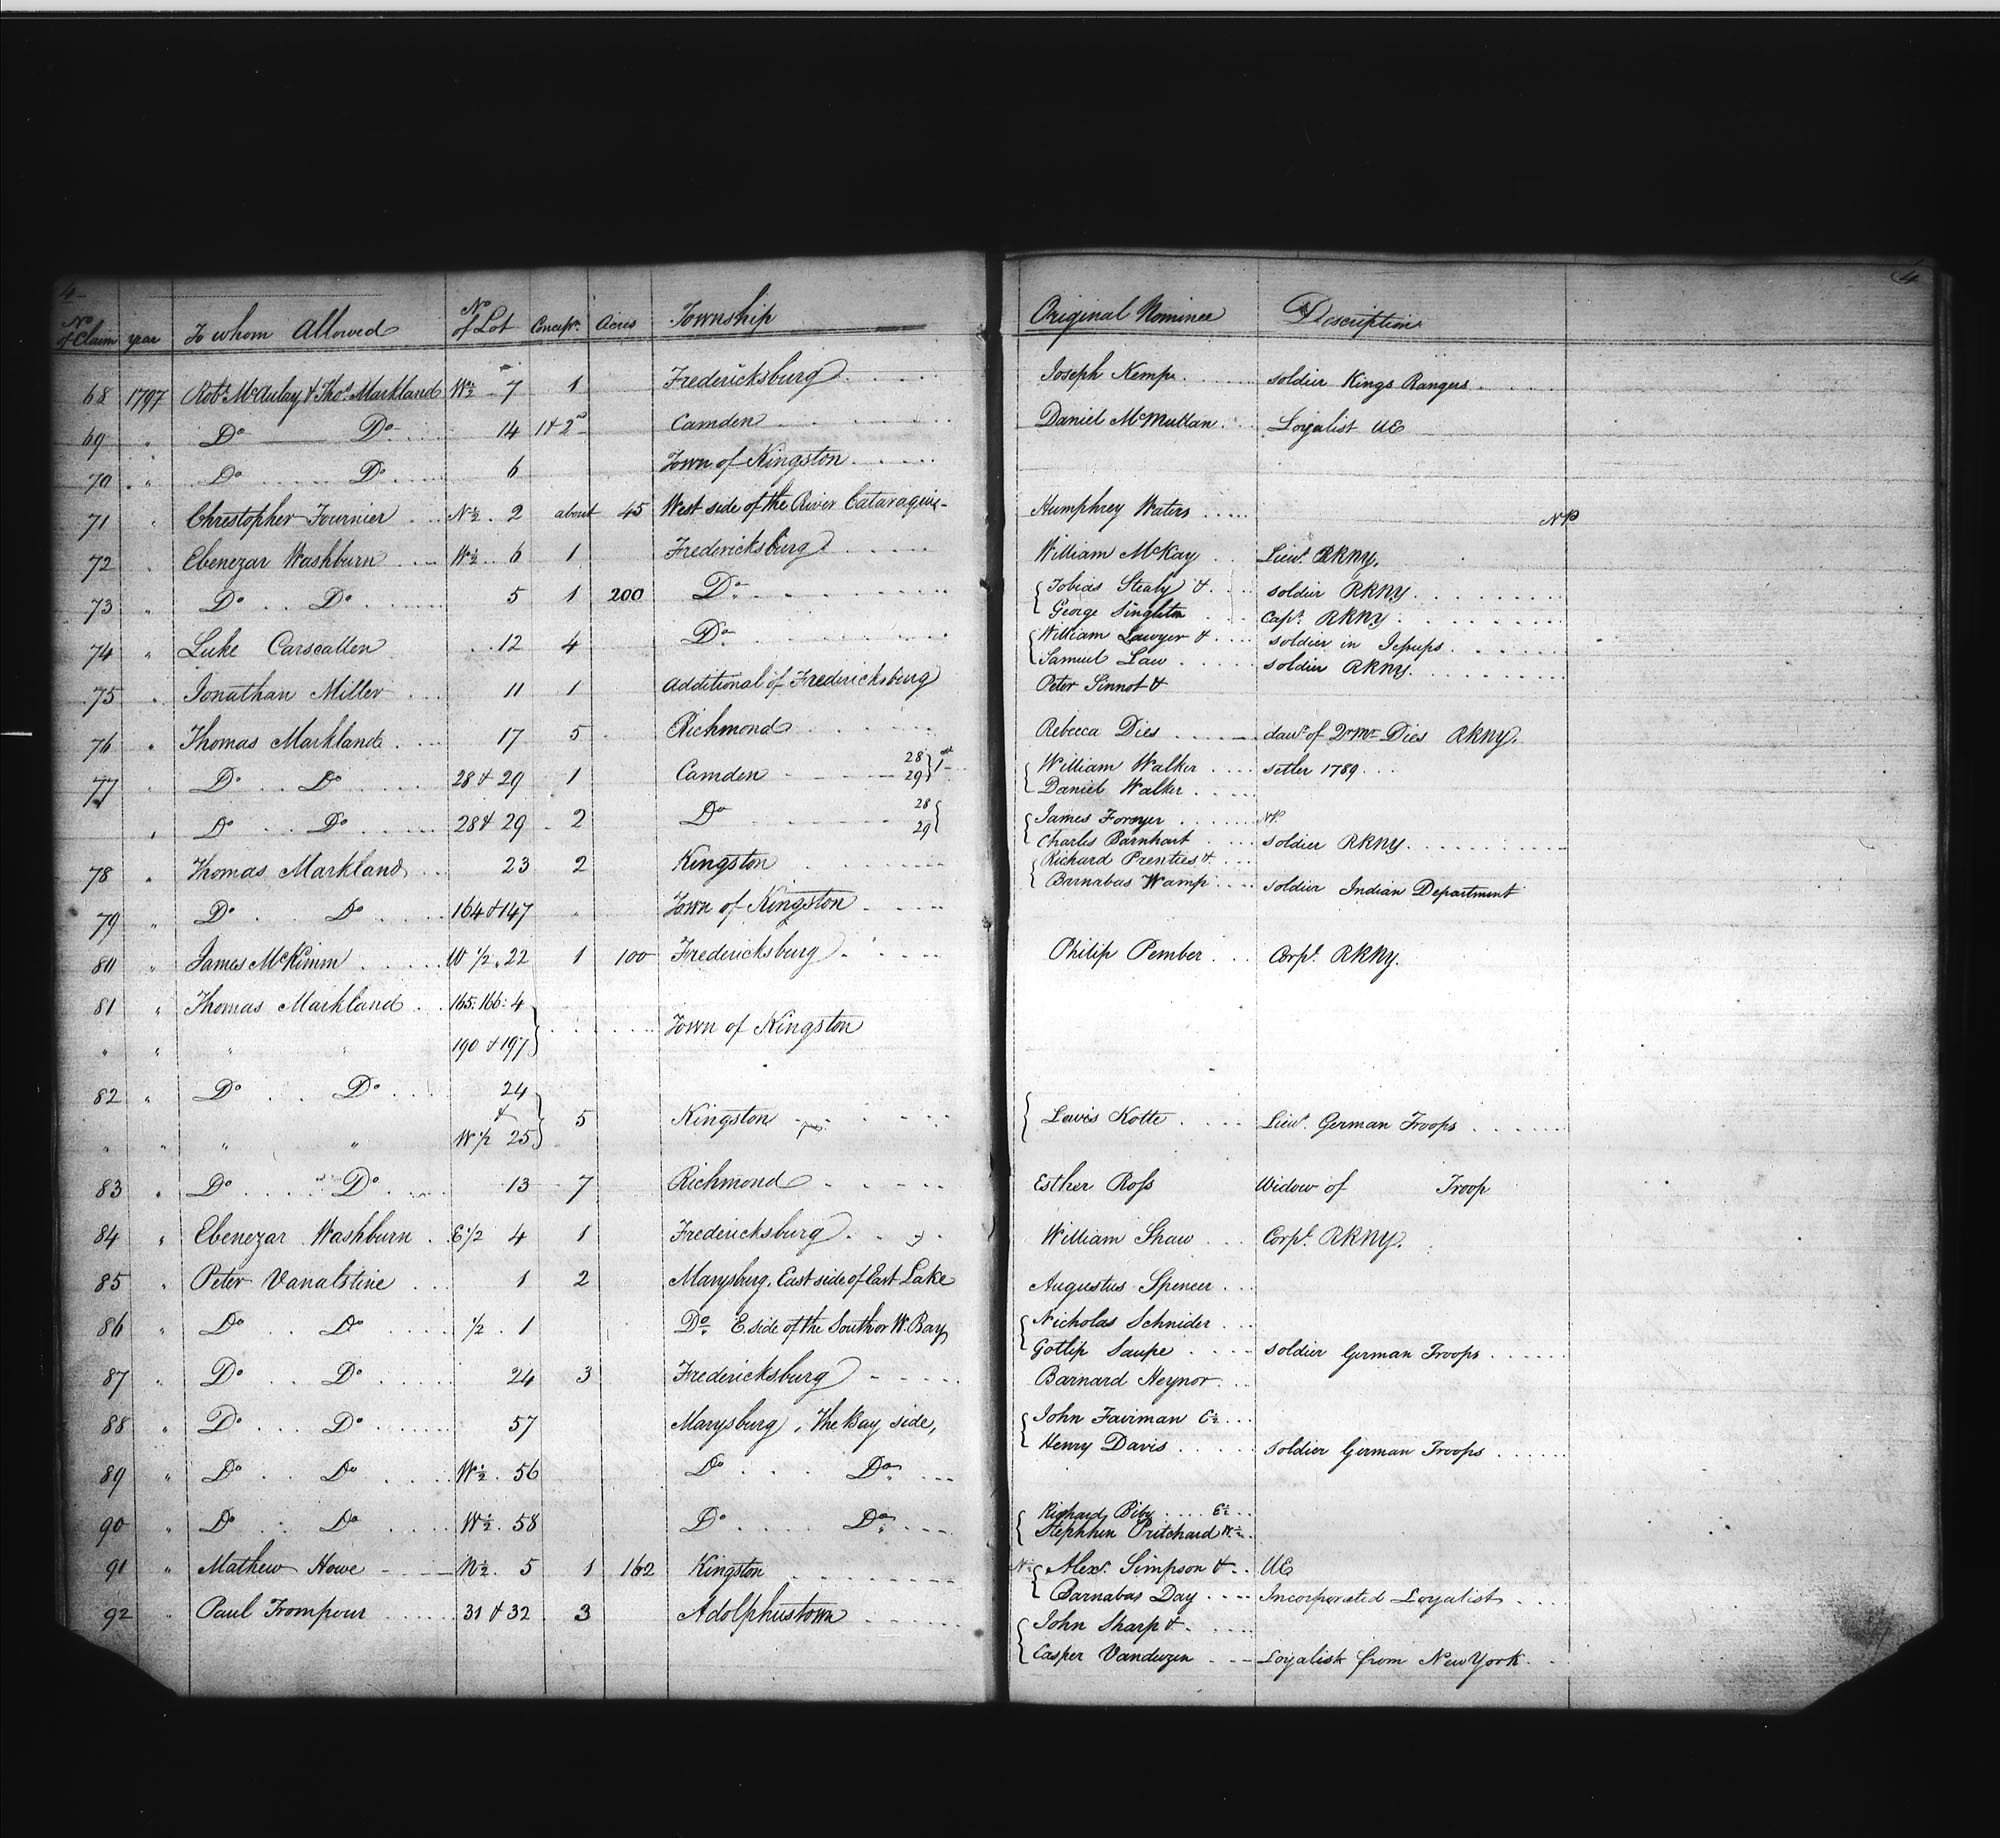 4
No of Claim year To whom Allowed No of Lot Concessn. Acres Township
68 1797 Robt. McAulay & Thos. Markland W½ 7 1 Fredericksburg
69 " Do Do 14 1 & 2nd Camden
70 " Do Do 6 Town of Kingston
71 " Christopher Fournier N½ 2 about 45 West side of the River Cataraquie
72 " Ebenezar Washburn W½ 6 1 Fredericksburg
73 " Do Do 5 1 200 Do
74 " Luke Carscallen 12 4 Do
75 " Jonathan Miller 11 1 Additional of Fredericksburg
76 " Thomas Markland 17 5 Richmond
77 " Do Do 28 & 29 1 Camden 28 29 } 1st
" Do Do 28 & 29 2 Do 28 29 }
78 " Thomas Markland 23 2 Kingston
79 " Do Do 164 & 147 " Town of Kingston
80 " James McKimm W 1/2 22 1 100 Fredericksburg
81 " Thomas Markland 165: 166: 4 } Town of Kingston
" " " " 190 & 197
82 " Do Do 24
& } 5 Kingston
" " " " W 1/2 25
83 " Do Do 13 7 Richmond
84 " Ebenezar Washburn E 1/2 4 1 Fredericksburg
85 " Peter Vanalstine 1 2 Marysburg, East side of East Lake
86 " Do Do 1/2 1 Do E side of the South or W. Bay
87 " Do Do 24 3 Fredericksburg
88 " Do Do 57 Marysburg, The Bay side,
89 " Do Do W½ 56 Do Do
90 " Do Do W½ 58 Do Do
91 " Mathew Howe N½ 5 1 162 Kingston
92 " Paul Trompour 31 & 32 3 Adolphustown
4
Original Nominee Description
Joseph Kemp soldier Kings Rangers
Daniel McMullan Loyalist UE
Humphrey Waters NP
William McKay Lieut. RRNY.
{ Tobias Stealy & soldier RRNY
George Singleton Capt. RRNY
{ William Lawyer & soldier in Jessups
Samuel Law soldier RRNY
Peter Sinnot &
Rebecca Dies daur. of Qr Mr Dies RRNY.
{ William Walker setler 1789
Daniel Walker
{ James Forsyer NP
Charles Barnhart soldier RRNY
{ Richard Prenties &
Barnabas Wamp soldier Indian Department
Philip Pember Corpl. RRNY.
{ Lewis Kotte Lieut. German Troops
Esther Ross Widow of Troop
William Shaw Corpl. RRNY.
Augustus Spencer
{ Nicholas Schnider
Gotlip Saupe soldier German Troops
Barnard Heynor
{ John Fairman E½
Henry Davis soldier German Troops
{ Richard Biby E½
Stephhen Pritchard W½
N½ { Alexr. Simpson & UE
Barnabas Day Incorporated Loyalist
{ John Sharp &
Casper Vanduzen Loyalist from New York